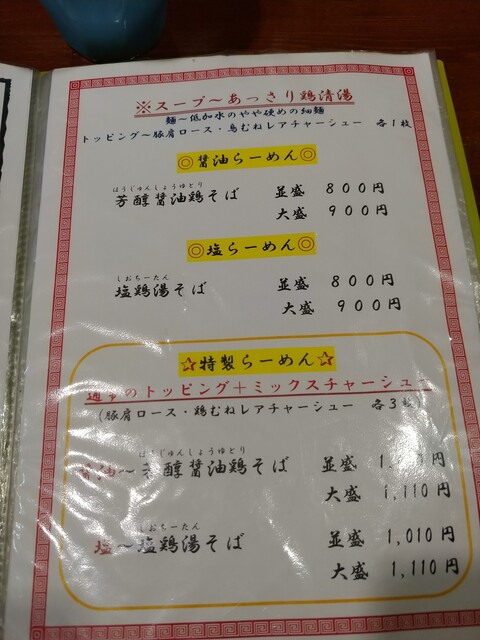 ※スープ～あっさり鶏清湯
麺～低加水のやや硬めの細麺
トッピング～豚肩ロース・鳥むねレアチャーシュー 各1枚
◎醤油らーめん◎
ほうじゅんしょうゆとり
芳醇醤油鶏そば 並盛 800円
大盛 900円
◎塩らーめん◎
しおちーたん
塩鶏湯そば 並盛 800円
大盛 900円
☆特製らーめん☆
のトッピング＋ミックスチャーシュー
(豚肩ロース・鶏むねレアチャーシュー 各3枚
ほうじゅんしょうゆとり
醤油～芳醇醤油鶏そば 並盛 1, 円
大盛 1,110円
しおちーたん
塩～塩鶏湯そば 並盛 1,010円
大盛 1,110円